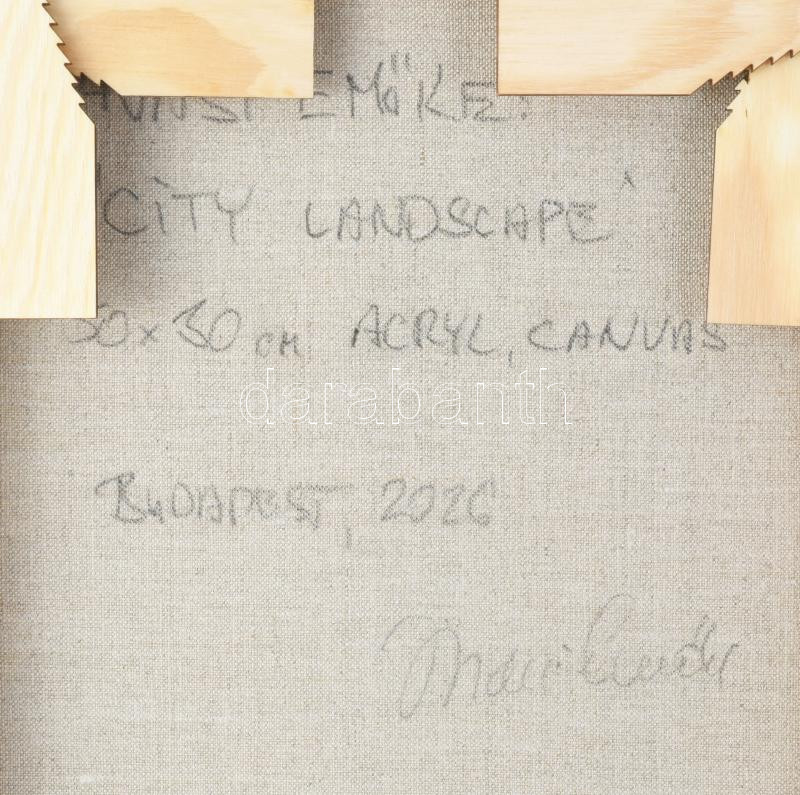 EMŐKE:
"CITY LANDSCAPE"
50x50 cm ACRYL, CANVAS
darabanth
BUDAPEST, 2026